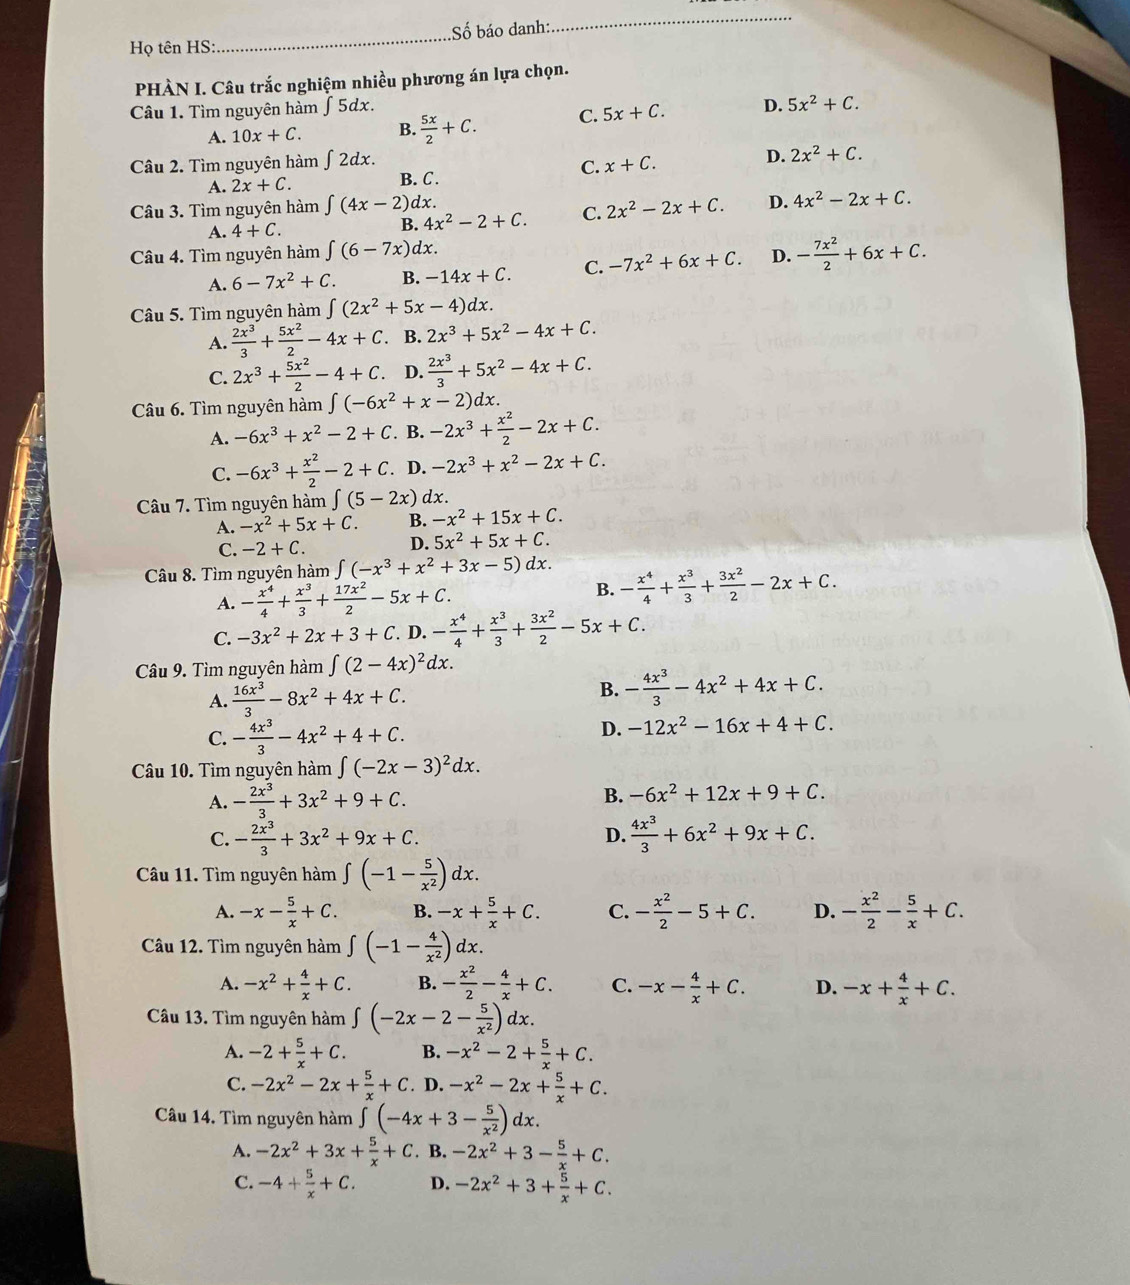 Họ tên HS:..............................Số báo danh:..............................
PHẦN I. Câu trắc nghiệm nhiều phương án lựa chọn.
Câu 1. Tìm nguyên hàm ∫ 5dx.
A. 10x + C. B. 5x/2 + C. C. 5x + C. D. 5x² + C.
Câu 2. Tìm nguyên hàm ∫ 2dx.
A. 2x + C. B. C. C. x + C. D. 2x² + C.
Câu 3. Tìm nguyên hàm ∫ (4x − 2)dx.
A. 4 + C. B. 4x² − 2 + C. C. 2x² − 2x + C. D. 4x² − 2x + C.
Câu 4. Tìm nguyên hàm ∫ (6 − 7x)dx.
A. 6 − 7x² + C. B. −14x + C. C. −7x² + 6x + C. D. −7x²/2 + 6x + C.
Câu 5. Tìm nguyên hàm ∫ (2x² + 5x − 4)dx.
A. 2x³/3 + 5x²/2 − 4x + C. B. 2x³ + 5x² − 4x + C.
C. 2x³ + 5x²/2 − 4 + C. D. 2x³/3 + 5x² − 4x + C.
Câu 6. Tìm nguyên hàm ∫ (−6x² + x − 2)dx.
A. −6x³ + x² − 2 + C. B. −2x³ + x²/2 − 2x + C.
C. −6x³ + x²/2 − 2 + C. D. −2x³ + x² − 2x + C.
Câu 7. Tìm nguyên hàm ∫ (5 − 2x) dx.
A. −x² + 5x + C. B. −x² + 15x + C.
C. −2 + C. D. 5x² + 5x + C.
Câu 8. Tìm nguyên hàm ∫ (−x³ + x² + 3x − 5) dx.
A. −x⁴/4 + x³/3 + 17x²/2 − 5x + C. B. −x⁴/4 + x³/3 + 3x²/2 − 2x + C.
C. −3x² + 2x + 3 + C. D. −x⁴/4 + x³/3 + 3x²/2 − 5x + C.
Câu 9. Tìm nguyên hàm ∫ (2 − 4x)²dx.
A. 16x³/3 − 8x² + 4x + C. B. −4x³/3 − 4x² + 4x + C.
C. −4x³/3 − 4x² + 4 + C. D. −12x² − 16x + 4 + C.
Câu 10. Tìm nguyên hàm ∫ (−2x − 3)²dx.
A. −2x³/3 + 3x² + 9 + C. B. −6x² + 12x + 9 + C.
C. −2x³/3 + 3x² + 9x + C. D. 4x³/3 + 6x² + 9x + C.
Câu 11. Tìm nguyên hàm ∫ (−1 − 5/x²) dx.
A. −x − 5/x + C. B. −x + 5/x + C. C. −x²/2 − 5 + C. D. −x²/2 − 5/x + C.
Câu 12. Tìm nguyên hàm ∫ (−1 − 4/x²) dx.
A. −x² + 4/x + C. B. −x²/2 − 4/x + C. C. −x − 4/x + C. D. −x + 4/x + C.
Câu 13. Tìm nguyên hàm ∫ (−2x − 2 − 5/x²) dx.
A. −2 + 5/x + C. B. −x² − 2 + 5/x + C.
C. −2x² − 2x + 5/x + C. D. −x² − 2x + 5/x + C.
Câu 14. Tìm nguyên hàm ∫ (−4x + 3 − 5/x²) dx.
A. −2x² + 3x + 5/x + C. B. −2x² + 3 − 5/x + C.
C. −4 + 5/x + C. D. −2x² + 3 + 5/x + C.